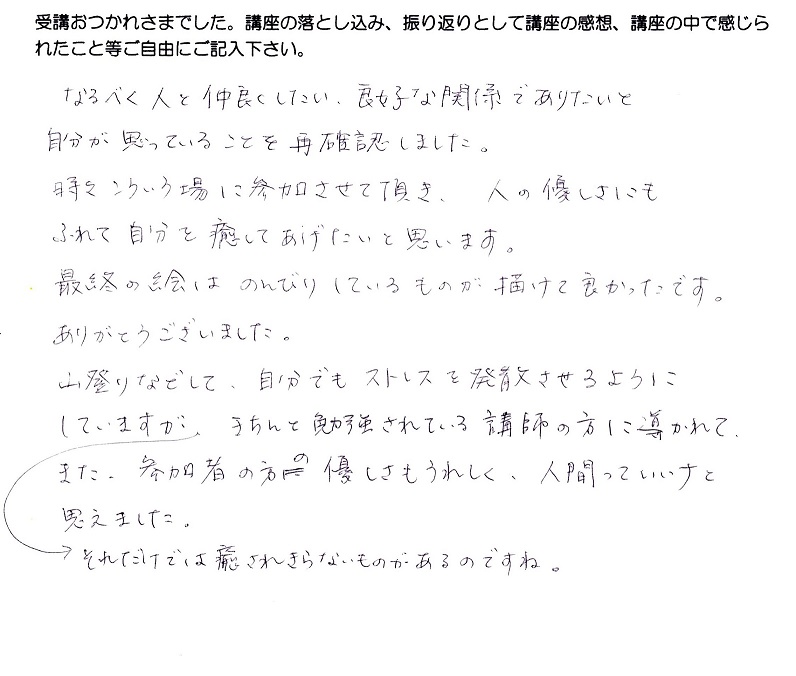 受講おつかれさまでした。講座の落とし込み、振り返りとして講座の感想、講座の中で感じら
れたこと等ご自由にご記入下さい。
なるべく人と仲良くしたい、良好な関係でありたいと
自分が思っていることを再確認しました。
時々こういう場に参加させて頂き、人の優しさにも
ふれて自分を癒してあげたいと思います。
最終の絵はのんびりしているものが描けて良かったです。
ありがとうございました。
山登りなどして、自分でもストレスを発散させるように
していますが、きちんと勉強されている講師の方に導かれて、
また、参加者の方の優しさもうれしく、人間っていいナと
思えました。
それだけでは癒されきらないものがあるのですね。